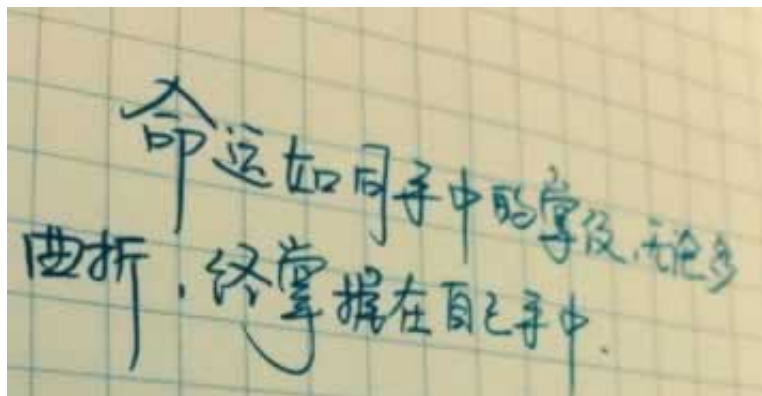 命运如同手中的掌纹,无论多
曲折,终掌握在自己手中.